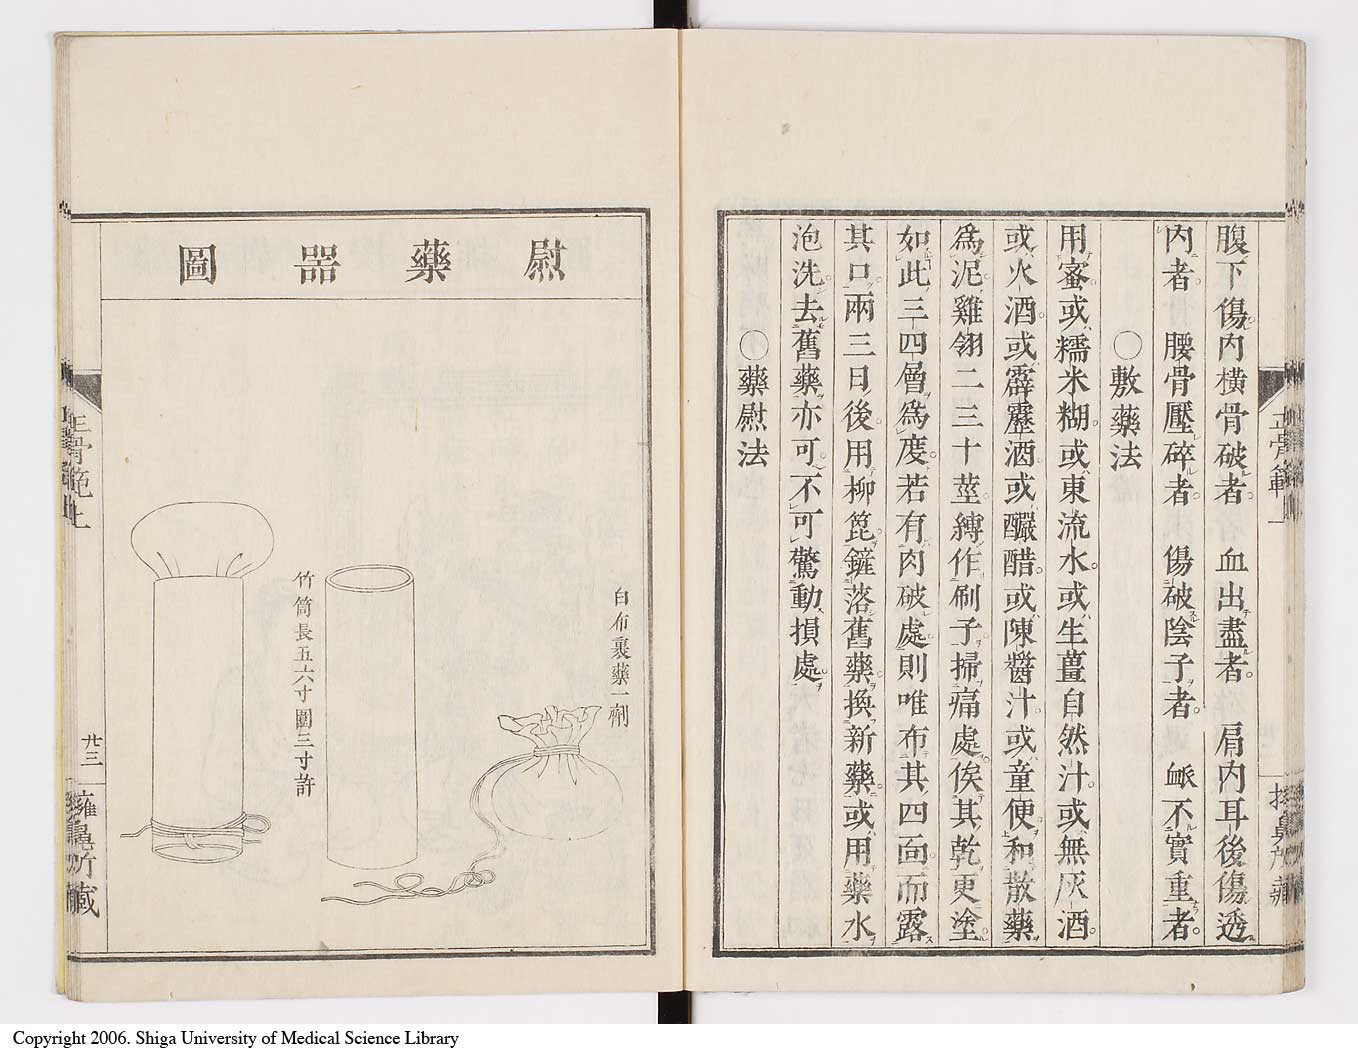 腹下傷内橫骨破者　血出盡者　肩内耳後傷透
内者　腰骨壓碎者　傷破陰子者　䘑不實重者
○敷藥法
用蜜或糯米糊或東流水或生薑自然汁或無灰酒
或火酒或霹靂酒或釅醋或陳醬汁或童便和散藥
爲泥雞翎二三十莖縛作刷子掃痛處俟其乾更塗
如此三四層爲度若有肉破處則唯布其四面而露
其口兩三日後用柳篦鏟落舊藥換新藥或用藥水
泡洗去舊藥亦可不可驚動損處
○藥慰法
慰藥器圖
白布裹藥一劑
竹筒長五六寸圍三寸許
正骨範上
廿三
Copyright 2006. Shiga University of Medical Science Library